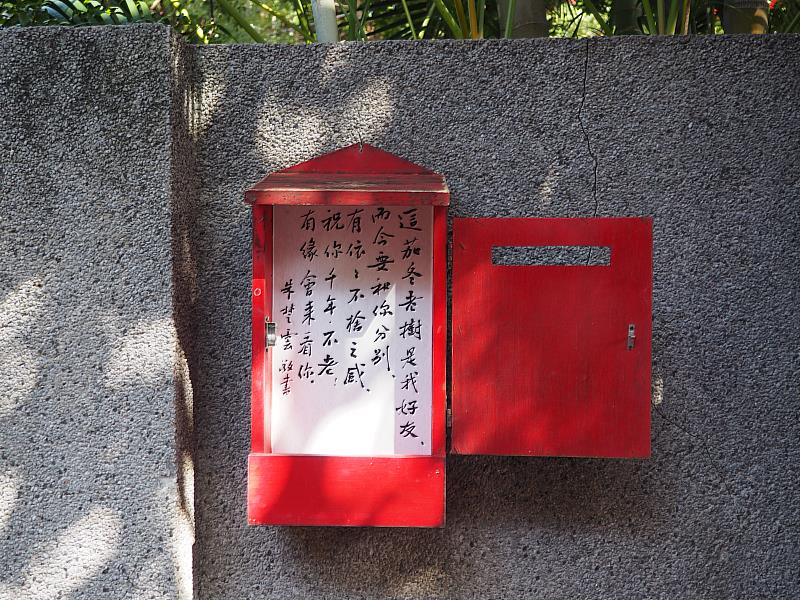 這茄冬老樹是我好友、
而今要和你分別
有依々不捨之感、
祝你千年不老！
有緣會來看你。
朱楚雲敬書